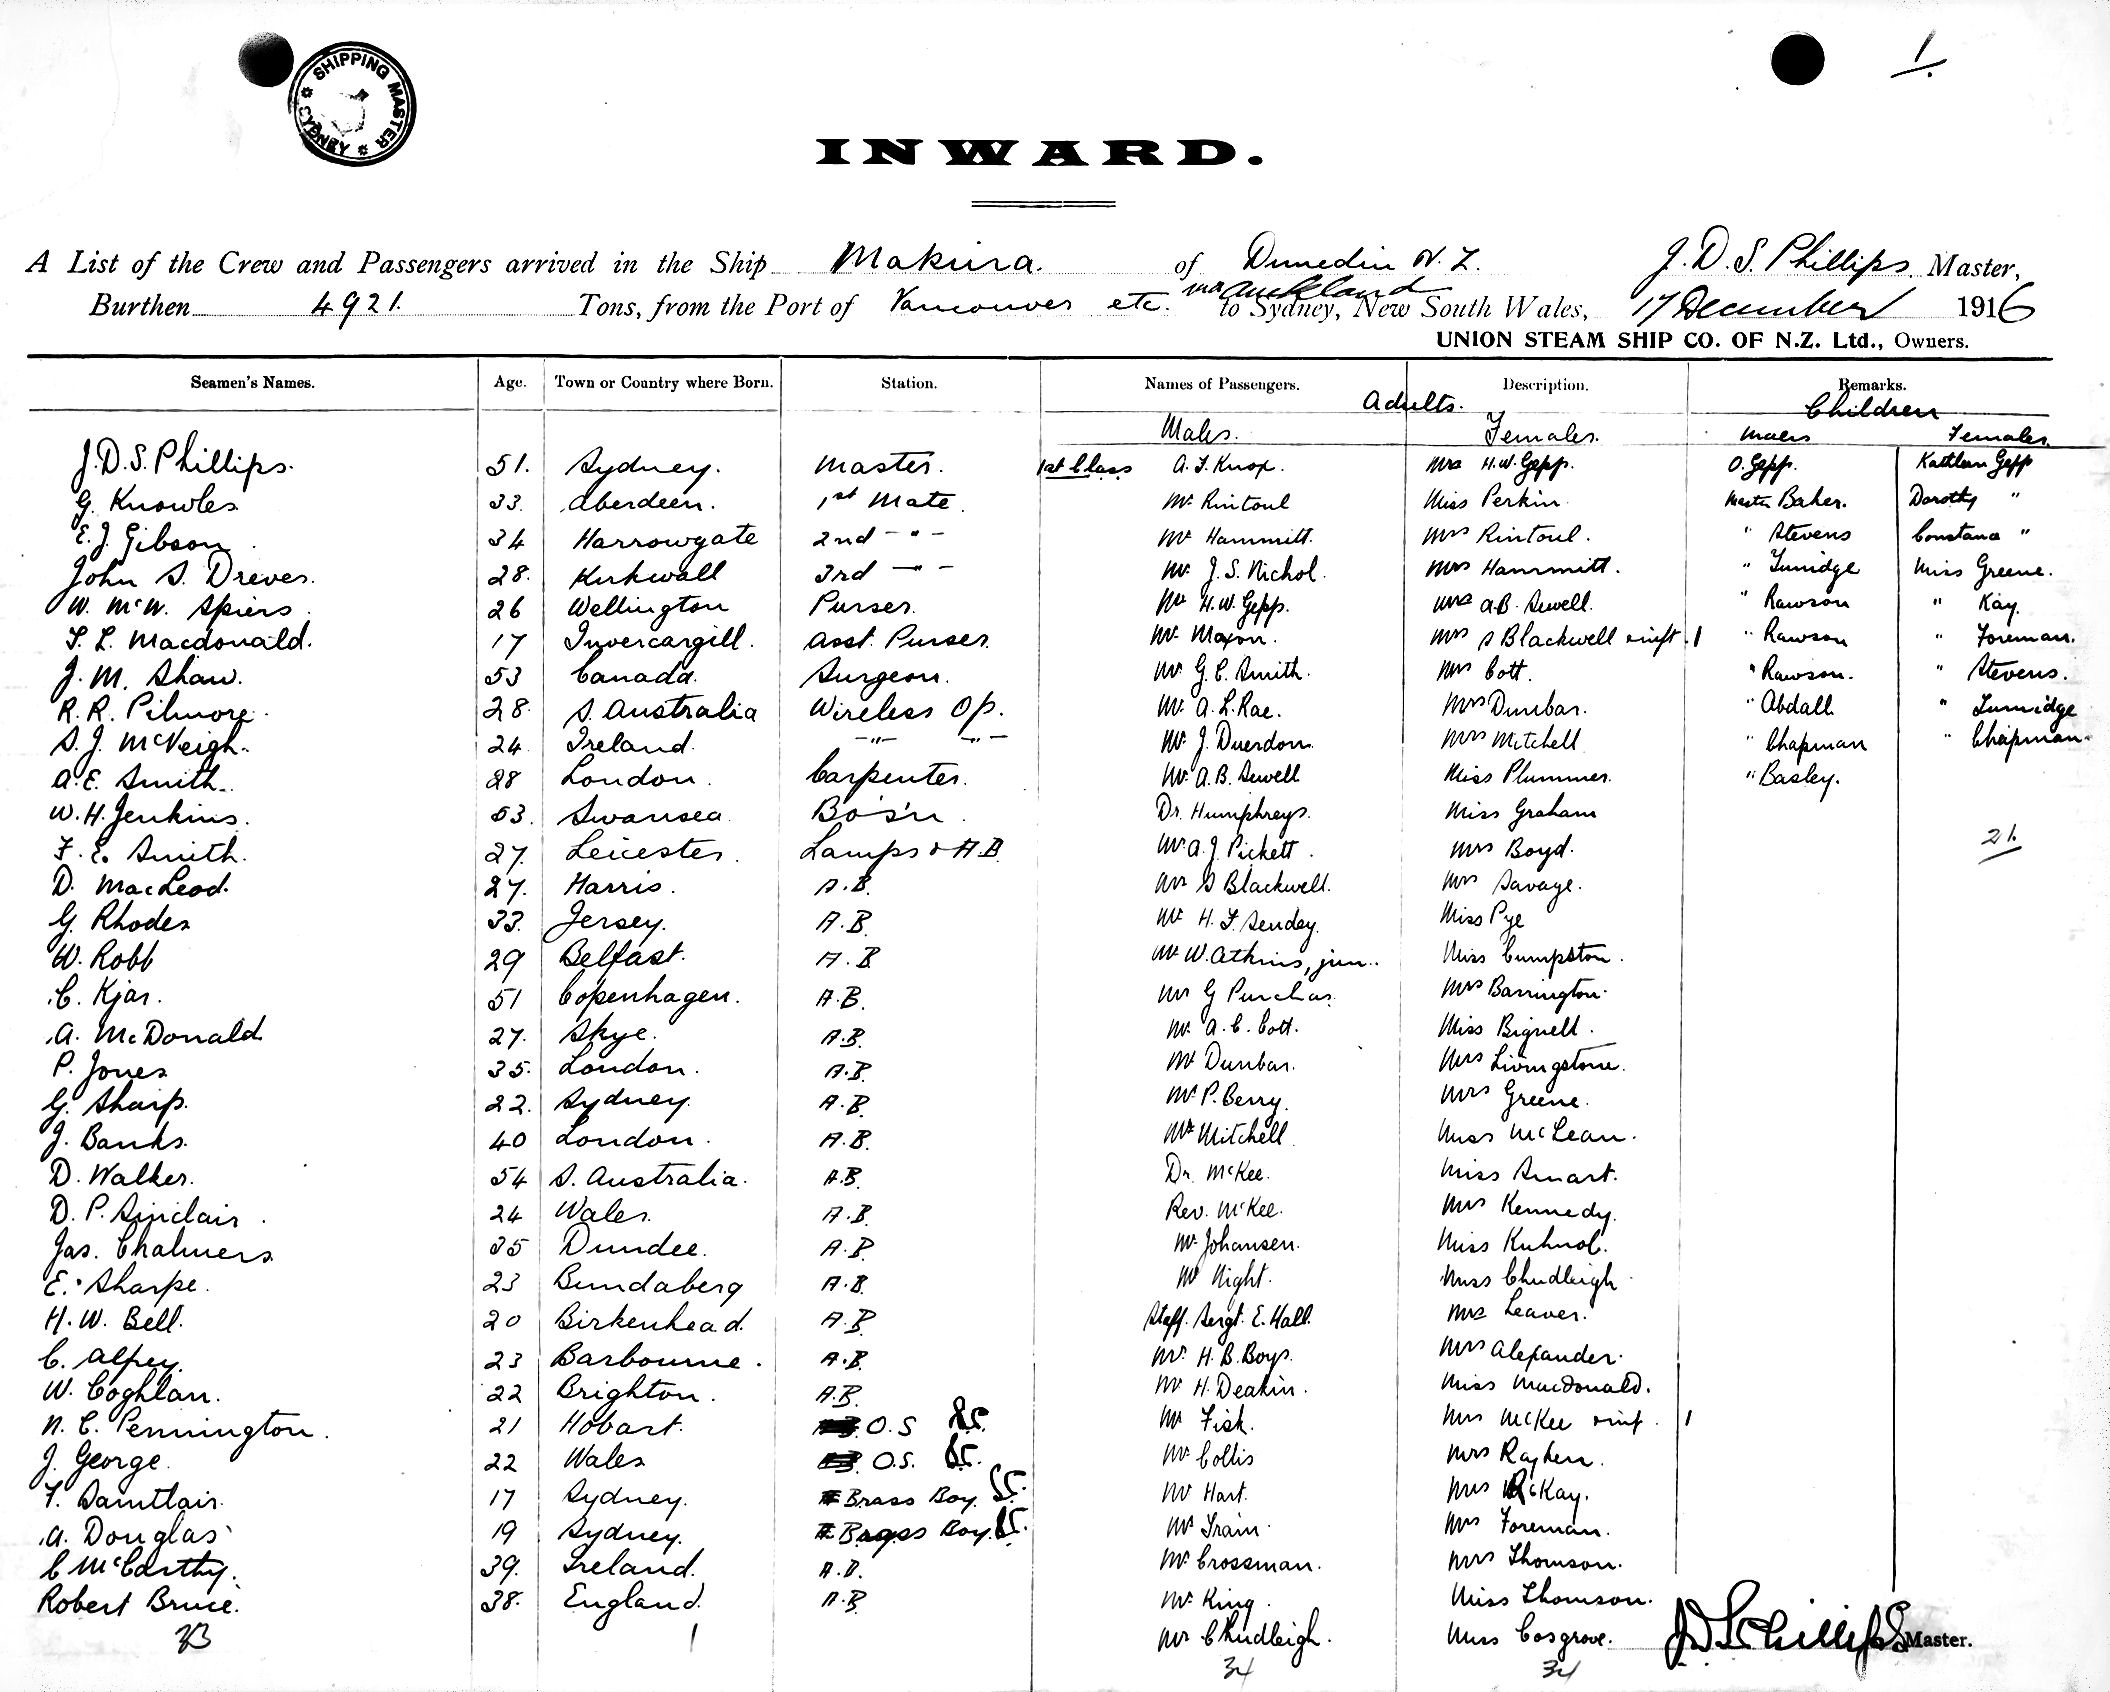 1.
SHIPPING MASTER
SYDNEY
INWARD.
A List of the Crew and Passengers arrived in the Ship Makura. of Dunedin N.Z. J.D.S. Phillips Master,
via Auckland
Burthen 4921. Tons, from the Port of Vancouver etc. to Sydney, New South Wales, 17 December 1916
UNION STEAM SHIP CO. OF N.Z. Ltd., Owners.
Seamen's Names. Age. Town or Country where Born. Station. Names of Passengers. Description. Remarks.
Adults. Children
Males. Females. Males Females.
J.D.S. Phillips. 51. Sydney. Master. 1st Class A. F. Knox. Mrs H.W. Gepp. O. Gepp. Kathleen Gepp
G. Knowles 33. Aberdeen. 1st Mate. Mr Rintoul Miss Perkin Master Baker. Dorothy "
E. J. Gibson 34 Harrowgate 2nd - " - Mr Hammitt. Mrs Rintoul. " Stevens Constance "
John S. Dreves. 28. Kirkwall 3rd - " - Mr. J. S. Nichol. Mrs Hammitt. " Tunidge Miss Greene.
W. McW. Spiers 26 Wellington Purser. Mr H.W. Gepp. Mrs A.B. Sewell. " Rawson " Kay.
F. L. Macdonald. 17 Invercargill. Asst. Purser. Mr. Maxon. Mrs S Blackwell & inft. 1 " Rawson " Foreman.
J. M. Shaw. 53 Canada. Surgeon. Mr. G. C. Smith. Mrs Cott. " Rawson. " Stevens.
R. R. Pilmore. 28. S. Australia Wireless Op. Mr. A. L. Rae. Mrs Dunbar. " Abdall " Tunidge
S. J. McVeigh. 24 Ireland. - " - - " - Mr. J. Duerdon. Mrs Mitchell " Chapman " Chapman.
A. E. Smith. 28 London. Carpenter. Mr. A. B. Sewell Miss Plummer. " Basley.
W. H. Jenkins. 53. Swansea Bo's'n Dr. Humphreys. Miss Graham
F. E. Smith. 27. Leicester. Lamps & A B Mr A. J. Pickett. Mrs Boyd. 21.
D. MacLeod. 27. Harris. A.B. Mr S Blackwell. Mrs Savage.
G. Rhodes 33. Jersey. A.B. Mr H. F. Senday. Miss Pye
W. Robb 29 Belfast. A.B. Mr W. Atkins, jun. Miss Cumpston.
C. Kjar. 51 Copenhagen. A.B. Mr G Purchas. Mrs Barrington.
A. McDonald. 27. Skye. A.B. Mr. A. C. Cott. Miss Bignell.
P. Jones 35. London. A.B. Mr Dunbar. Mrs Livingstone.
G. Sharp. 22. Sydney. A.B. Mr P. Berry. Mrs Greene.
J. Banks. 40 London. A.B. Mr Mitchell. Miss McLean.
D. Walker. 54 S. Australia. A.B. Dr. McKee. Miss Smart.
D. P. Sinclair. 24 Wales. A.B. Rev. McKee. Mrs Kennedy.
Jas. Chalmers 35 Dundee. A.B. Mr Johansen. Miss
E. Sharpe. 23 Bundaberg A.B. Mr Night. Miss Chudleigh
H. W. Bell. 20 Birkenhead. A.B. Staff. Sergt. E. Hall. Mrs Leaver.
C. Alpey. 23 Barbourne. A.B. Mr. H. B. Boys. Mrs Alexander.
W. Coghlan. 22 Brighton. A.B. Mr H. Deakin. Miss Macdonald.
N. C. Pennington. 21 Hobart. O.S Mr Fisk. Mrs McKee & inf. 1
J. George. 22 Wales O.S. Mr Collis Mrs
F. 17 Sydney. Brass Boy. Mr Hart. Mrs McKay.
A. Douglas 19 Sydney. Brass Boy. Mr Train. Mrs Foreman.
C McCarthy. 39. Ireland. A.B. Mr Crossman. Mrs Thomson.
Robert Bruce. 38. England. A.B. Mr King. Miss Thomson.
33 1 Mr Chudleigh. Miss Cosgrove. J D S Phillips Master.
34 34